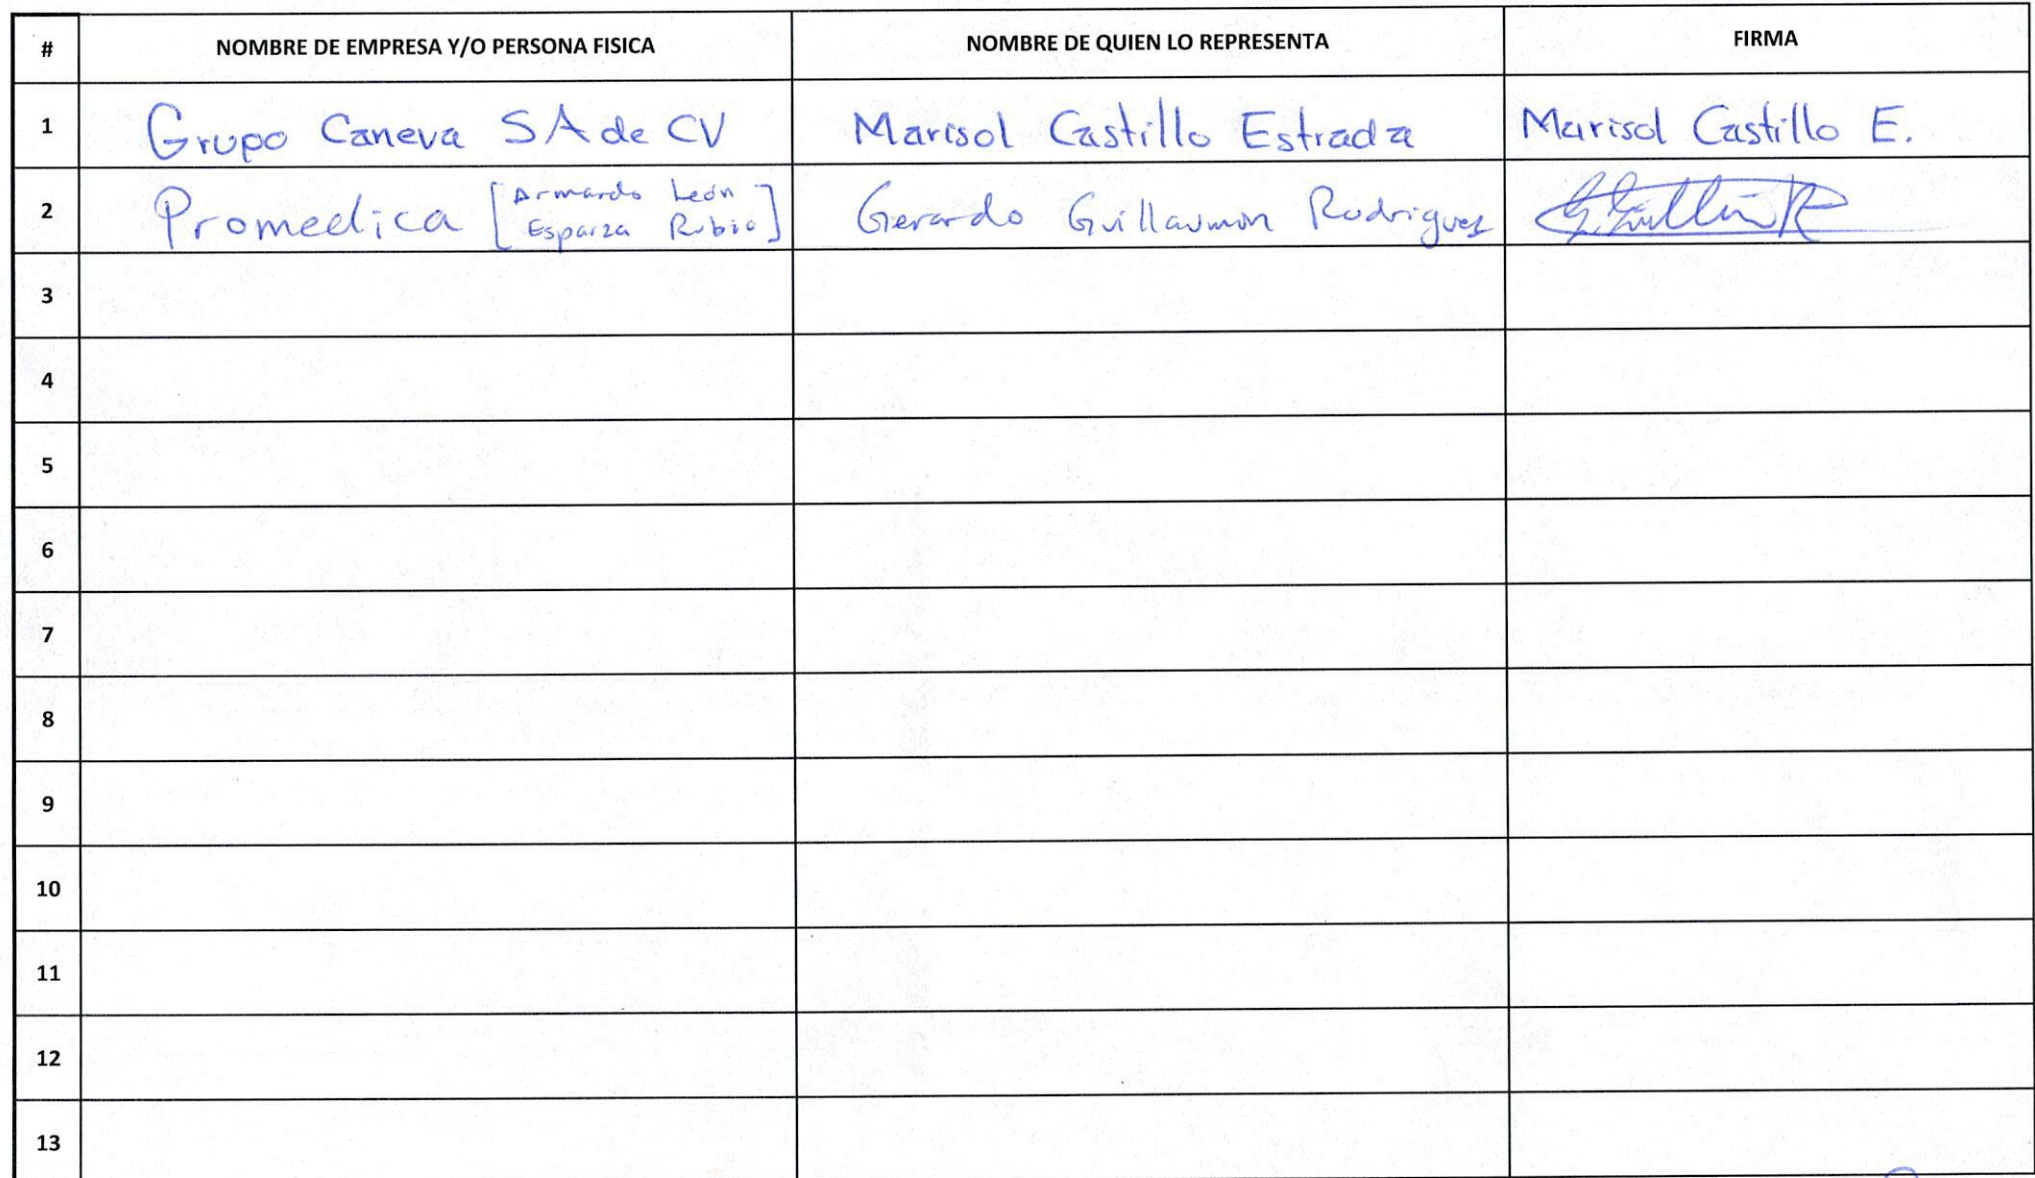 # NOMBRE DE EMPRESA Y/O PERSONA FISICA NOMBRE DE QUIEN LO REPRESENTA FIRMA
1 Grupo Caneva SA de CV Marisol Castillo Estrada Marisol Castillo E.
2 Promedica [Armando León Esparza Rubio] Gerardo Guillaumin Rodriguez
3
4
5
6
7
8
9
10
11
12
13